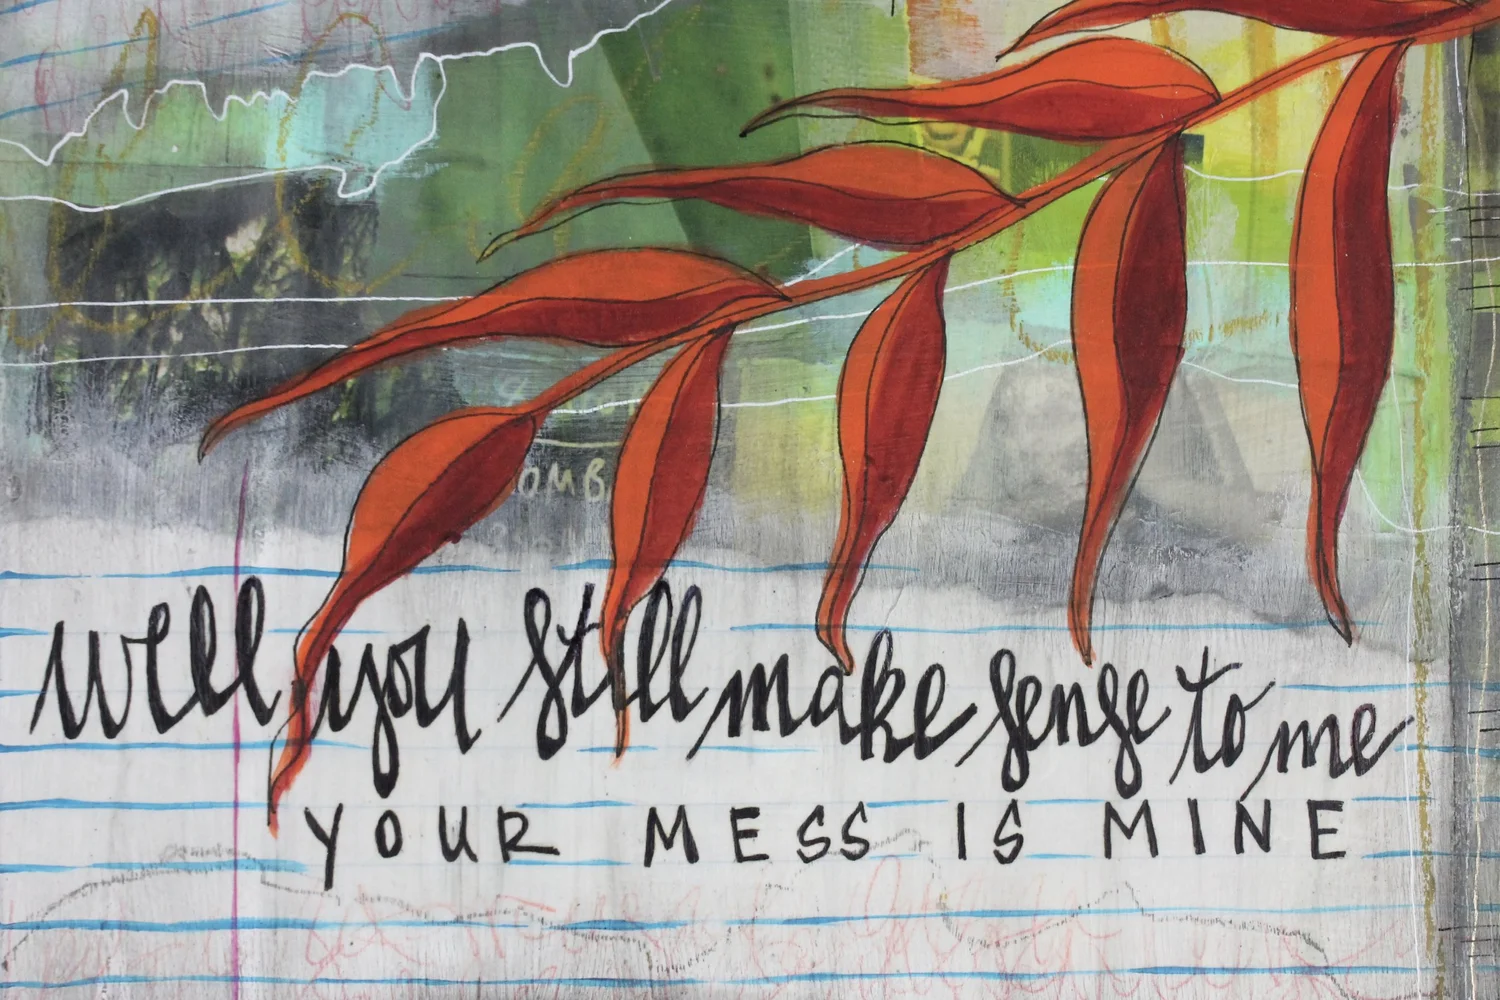 OMB
well you still make sense to me
YOUR MESS IS MINE